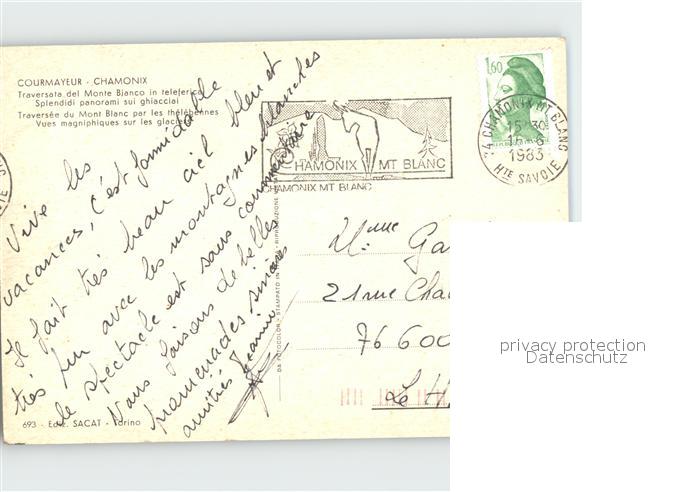 COURMAYEUR - CHAMONIX
Traversata del Monte Bianco in teleferica
Splendidi panorami sui ghiacciai
Traversée du Mont Blanc par les thélébennes
Vues magniphiques sur les glaciers
Vive les
vacances, c'est formidable
Il fait très beau ciel bleu et
très pur avec les montagnes blanches
le spectacle est sans commentaire
Nous faisons de belles
promenades sincères
amitiés Jeannine
CHAMONIX MT BLANC
CHAMONIX MT BLANC
1,60
74 CHAMONIX MT BLANC
15H30
1983
HTE SAVOIE
Mme Ga
21 rue Cha
76600
Le H
693 - Ediz. SACAT - Torino
privacy protection
Datenschutz